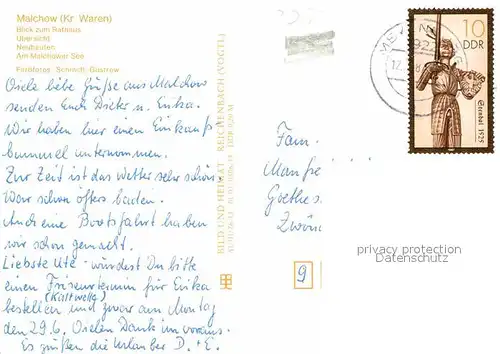 Malchow (Kr Waren)
Blick zum Rathaus
Übersicht
Neubauten
Am Malchower See
Farbfotos: Schmidt, Güstrow
Viele liebe Grüße aus Malchow
senden Euch Dieter u. Erika.
Wir haben hier einen Einkaufs
bummel unternommen.
Zur Zeit ist das Wetter sehr schön.
War schon öfters baden.
Auch eine Bootsfahrt haben
wir schon gemacht.
Liebste Ute - würdest Du bitte
einen Friseurtermin für Erika
(Kaltwelle)
bestellen und zwar am Montag
den 29.6. Vielen Dank im voraus.
Es grüßen die Urlauber D. + E.
BILD UND HEIMAT REICHENBACH (VOGTL)
Fam.
Manfre
Goethes
Zwöni
9
10
DDR
Stendal 1525
privacy protection
Datenschutz